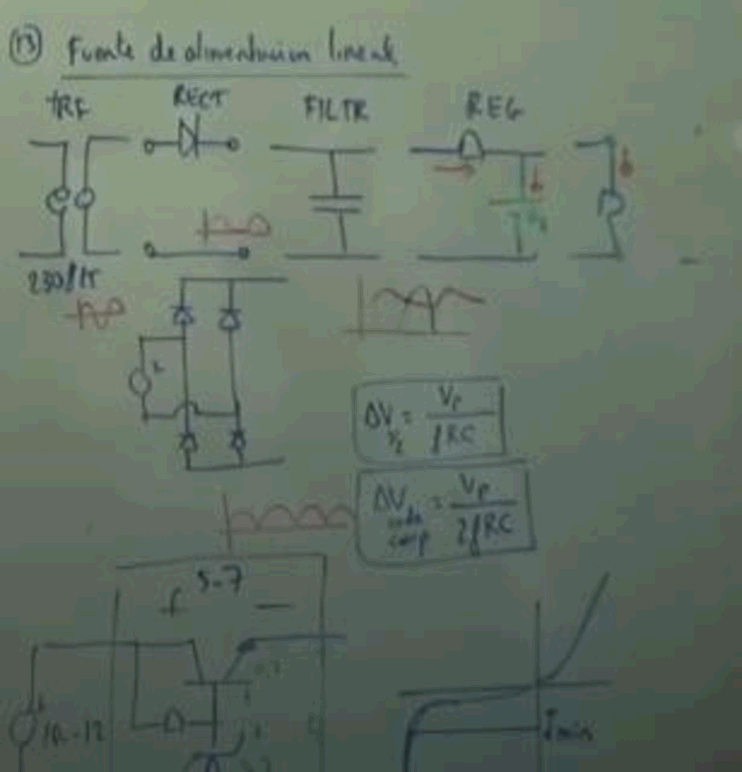 13 Fuente de alimentacion lineal
TRF RECT FILTR REG
230/15
ΔV 1/2 = Vp / fRC
ΔV onda comp = Vp / 2fRC
5-7
+ −
10-12
Imin